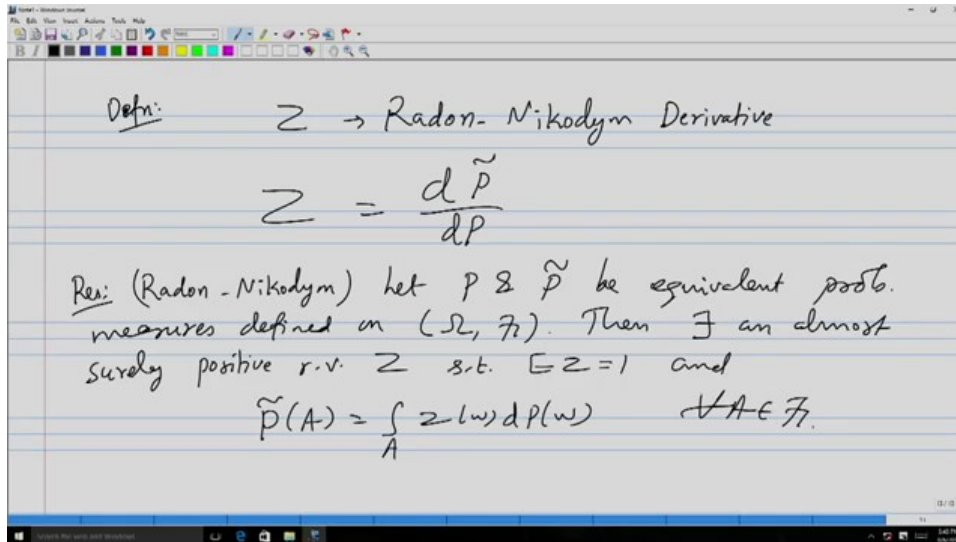 File Edit View Insert Actions Tools Help
B I
Defn: Z → Radon-Nikodym Derivative
Z = dP̃/dP
Res: (Radon-Nikodym) Let P & P̃ be equivalent prob.
measures defined on (Ω, ℱ). Then ∃ an almost
surely positive r.v. Z s.t. EZ=1 and
P̃(A) = ∫_A Z(ω) dP(ω) ∀ A ∈ ℱ.